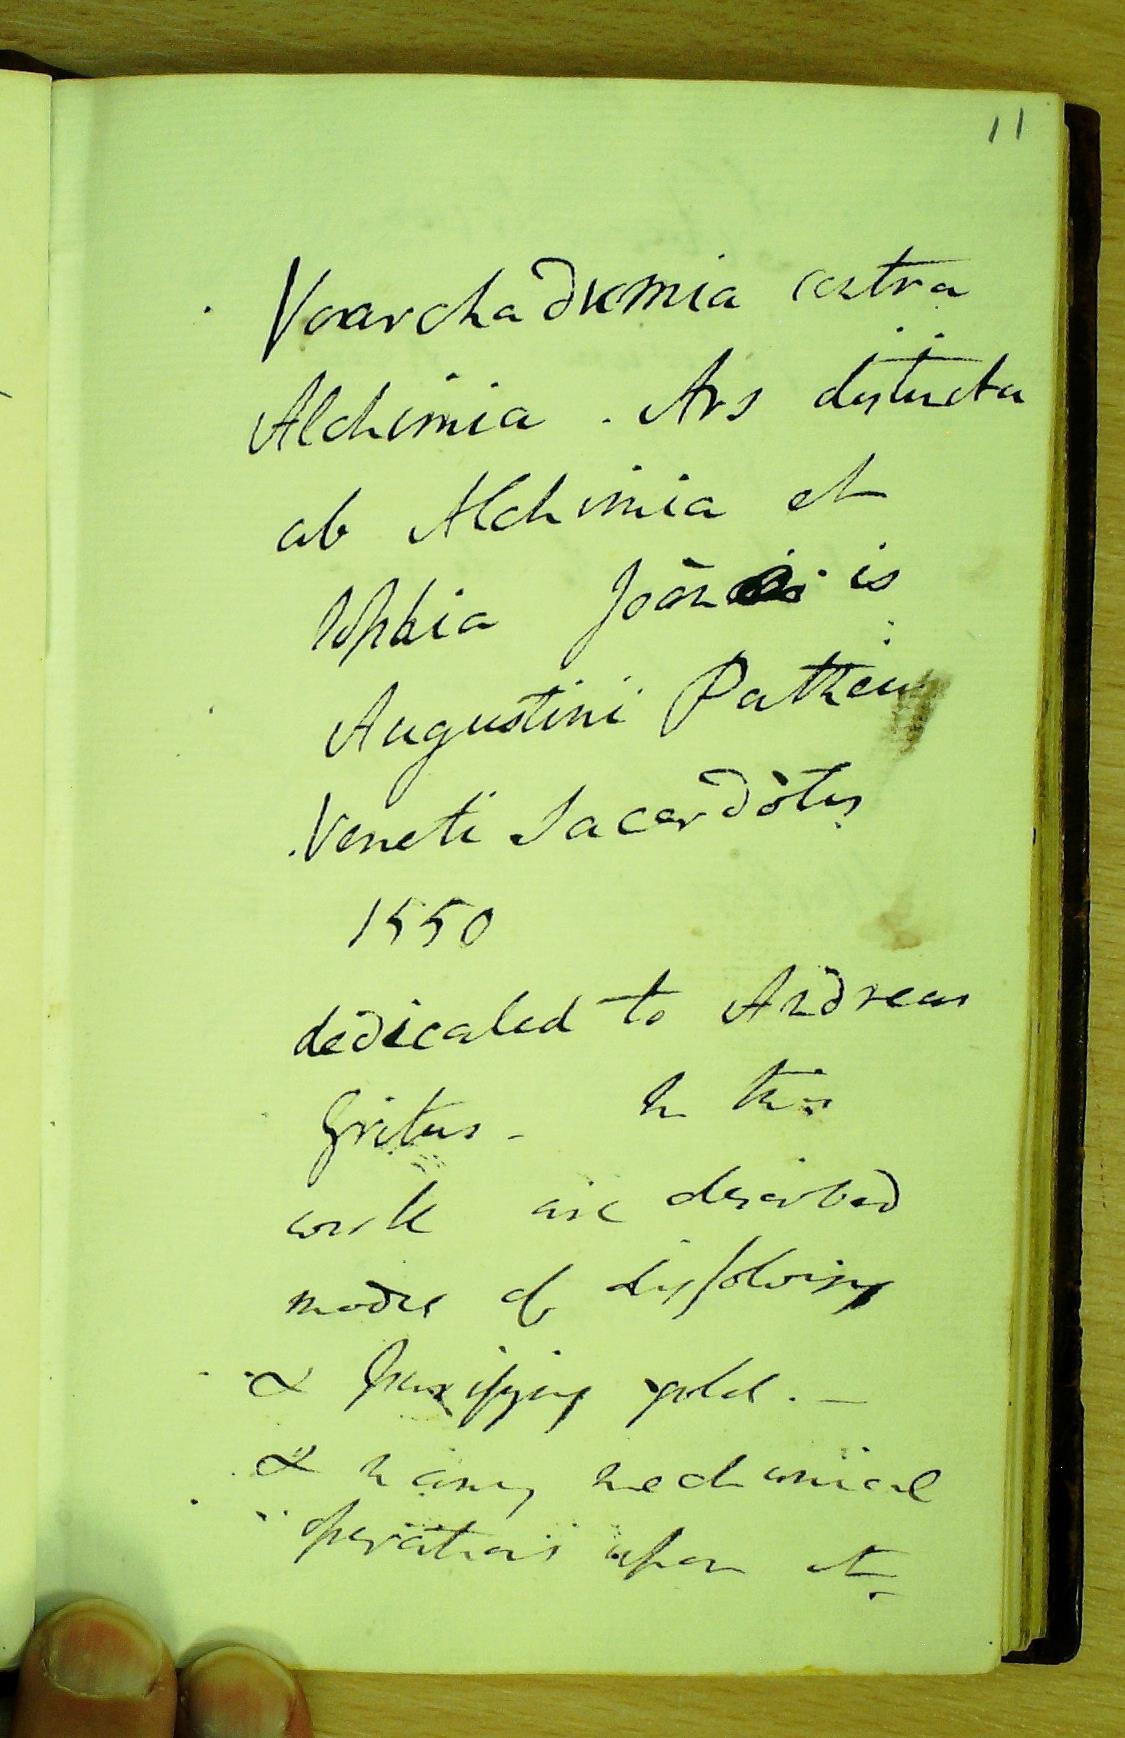 11
Voarchadumia contra
Alchimia. Ars distincta
ab Alchimia et
Sophia Joānis
Augustini Panthei
Veneti Sacerdotis
1550
dedicated to Andreas
Gritus - In this
work are described
modes of dissolving
& purifying gold. -
& many mechanical
operations upon it.